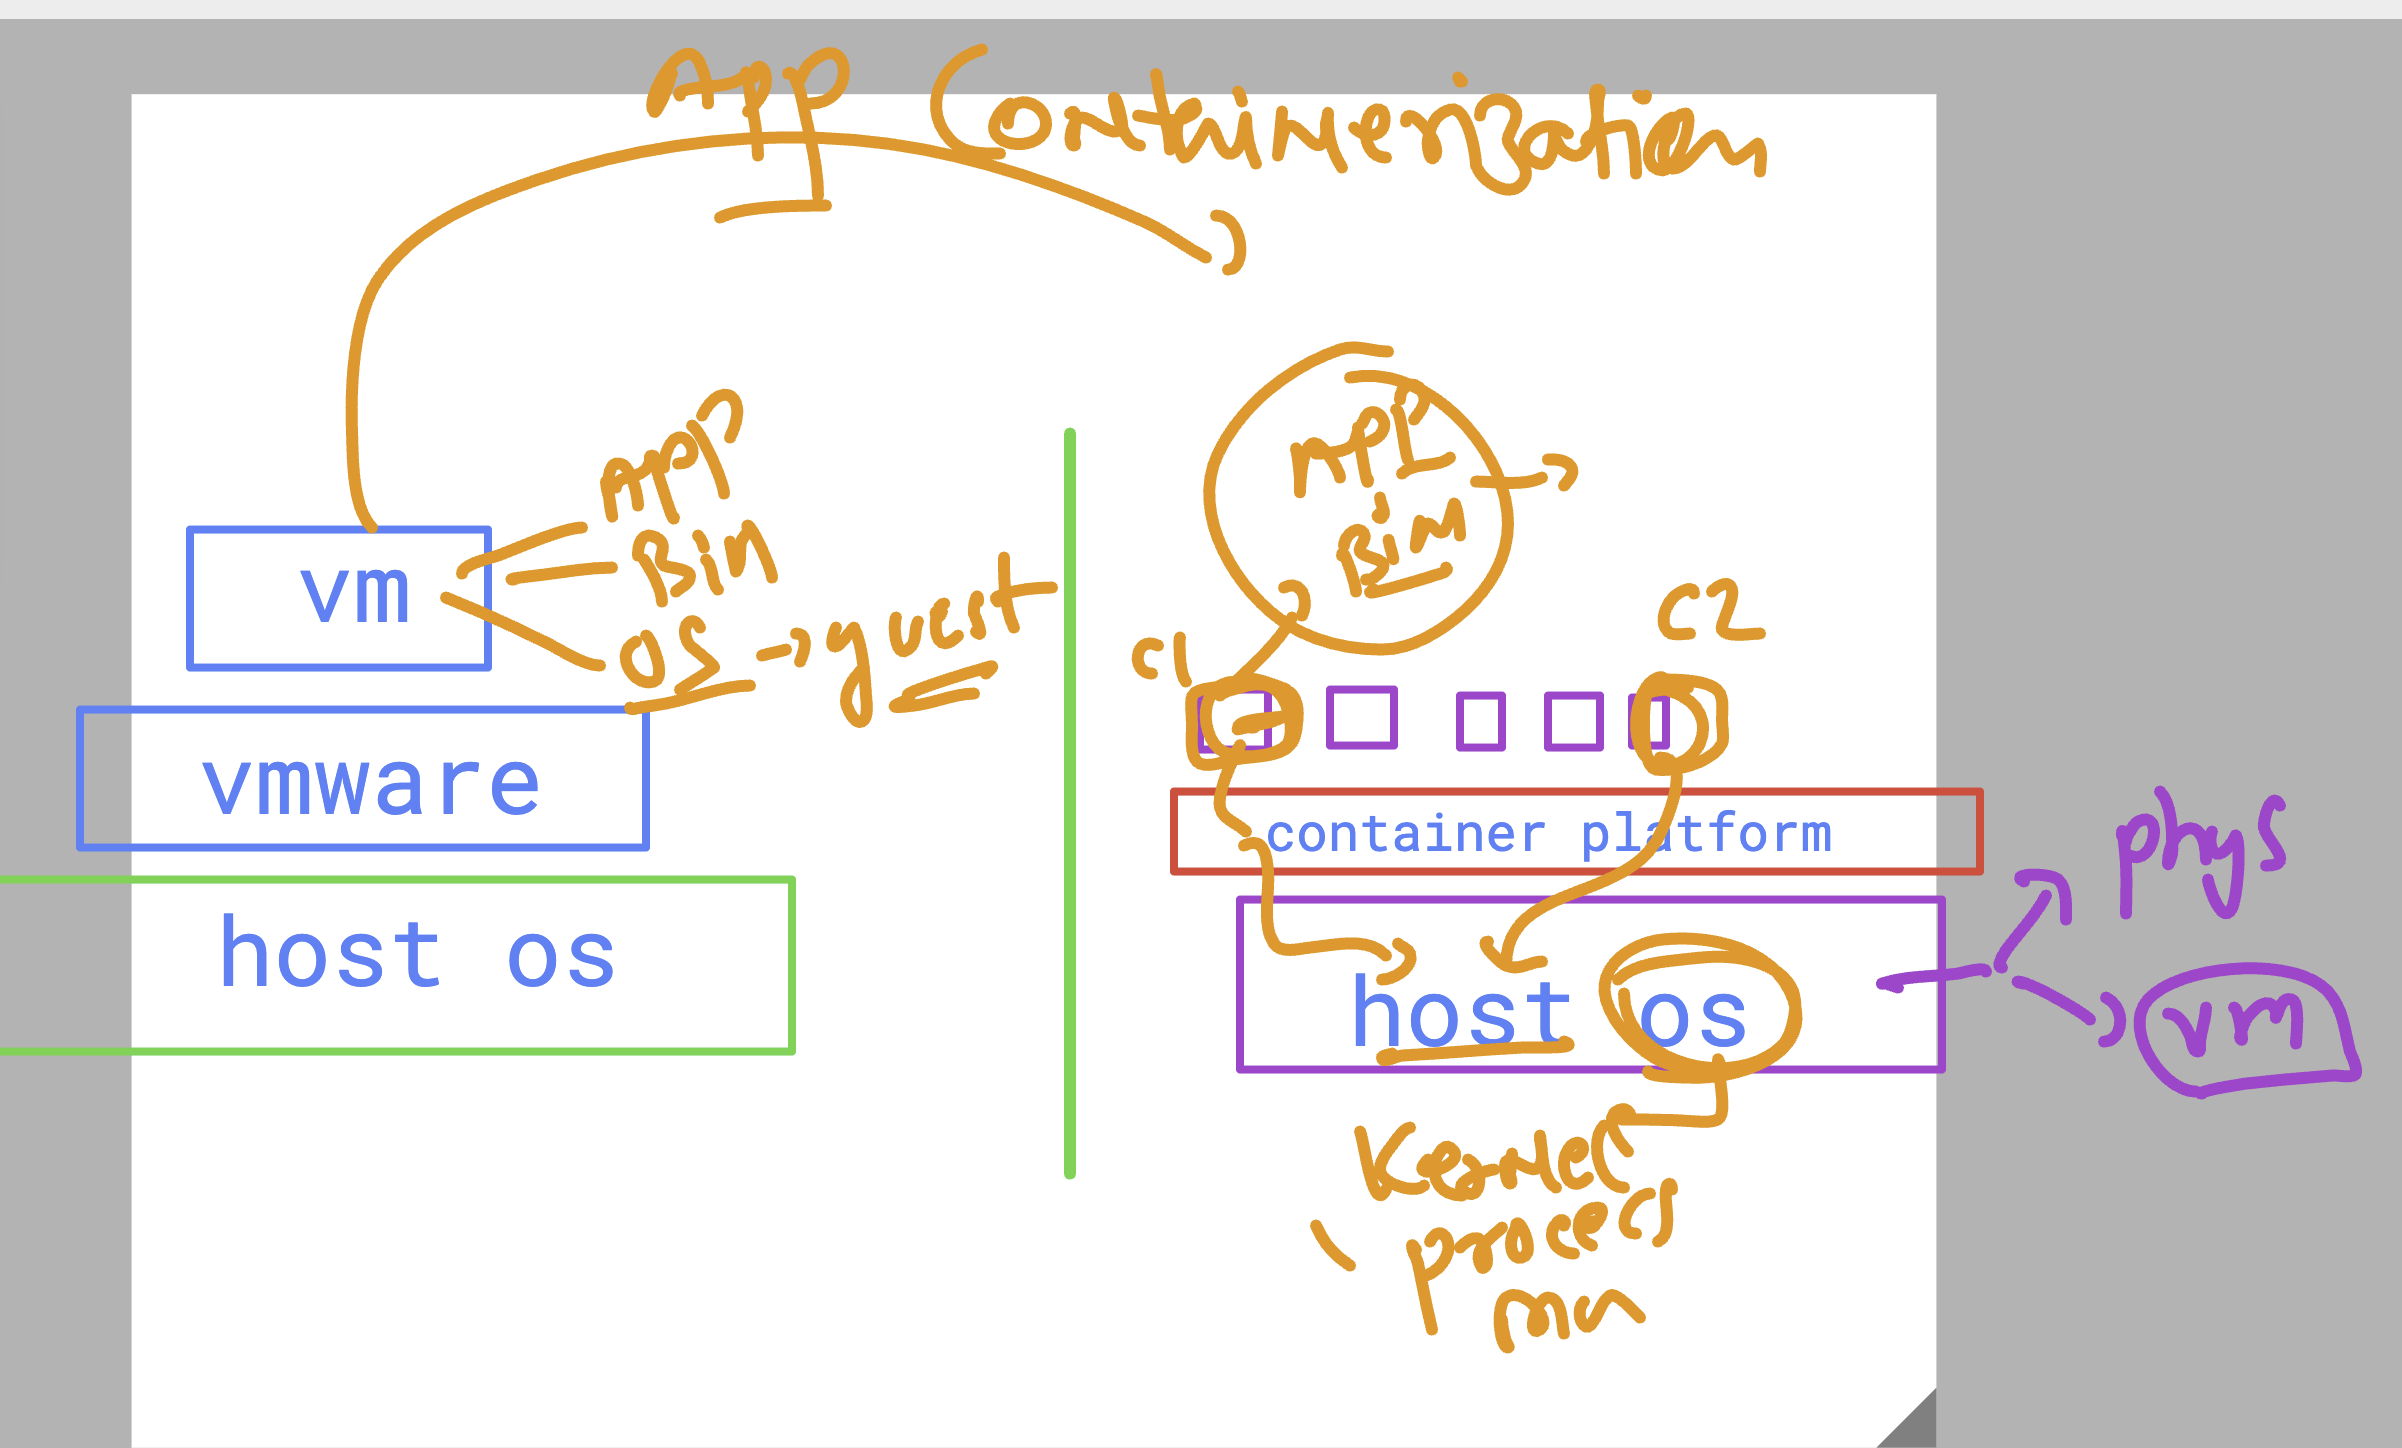 App Containerization
vm
App
Bin
OS → guest
vmware
host os
App
Bin
C1
C2
container platform
host os
phys
vm
Kernel
process